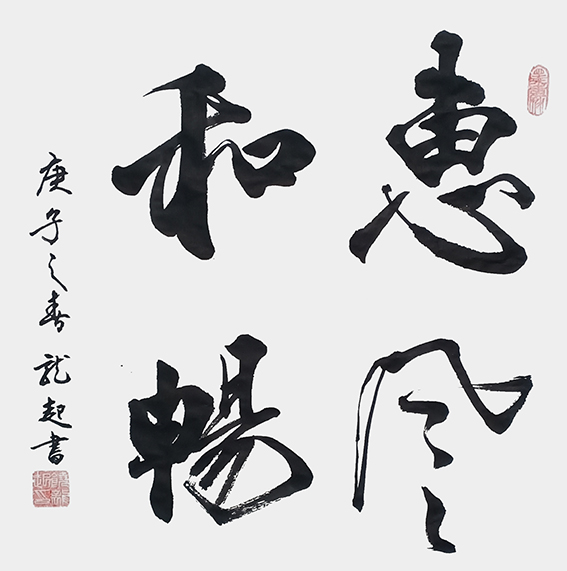 惠風
和暢
庚子之春 龍起書